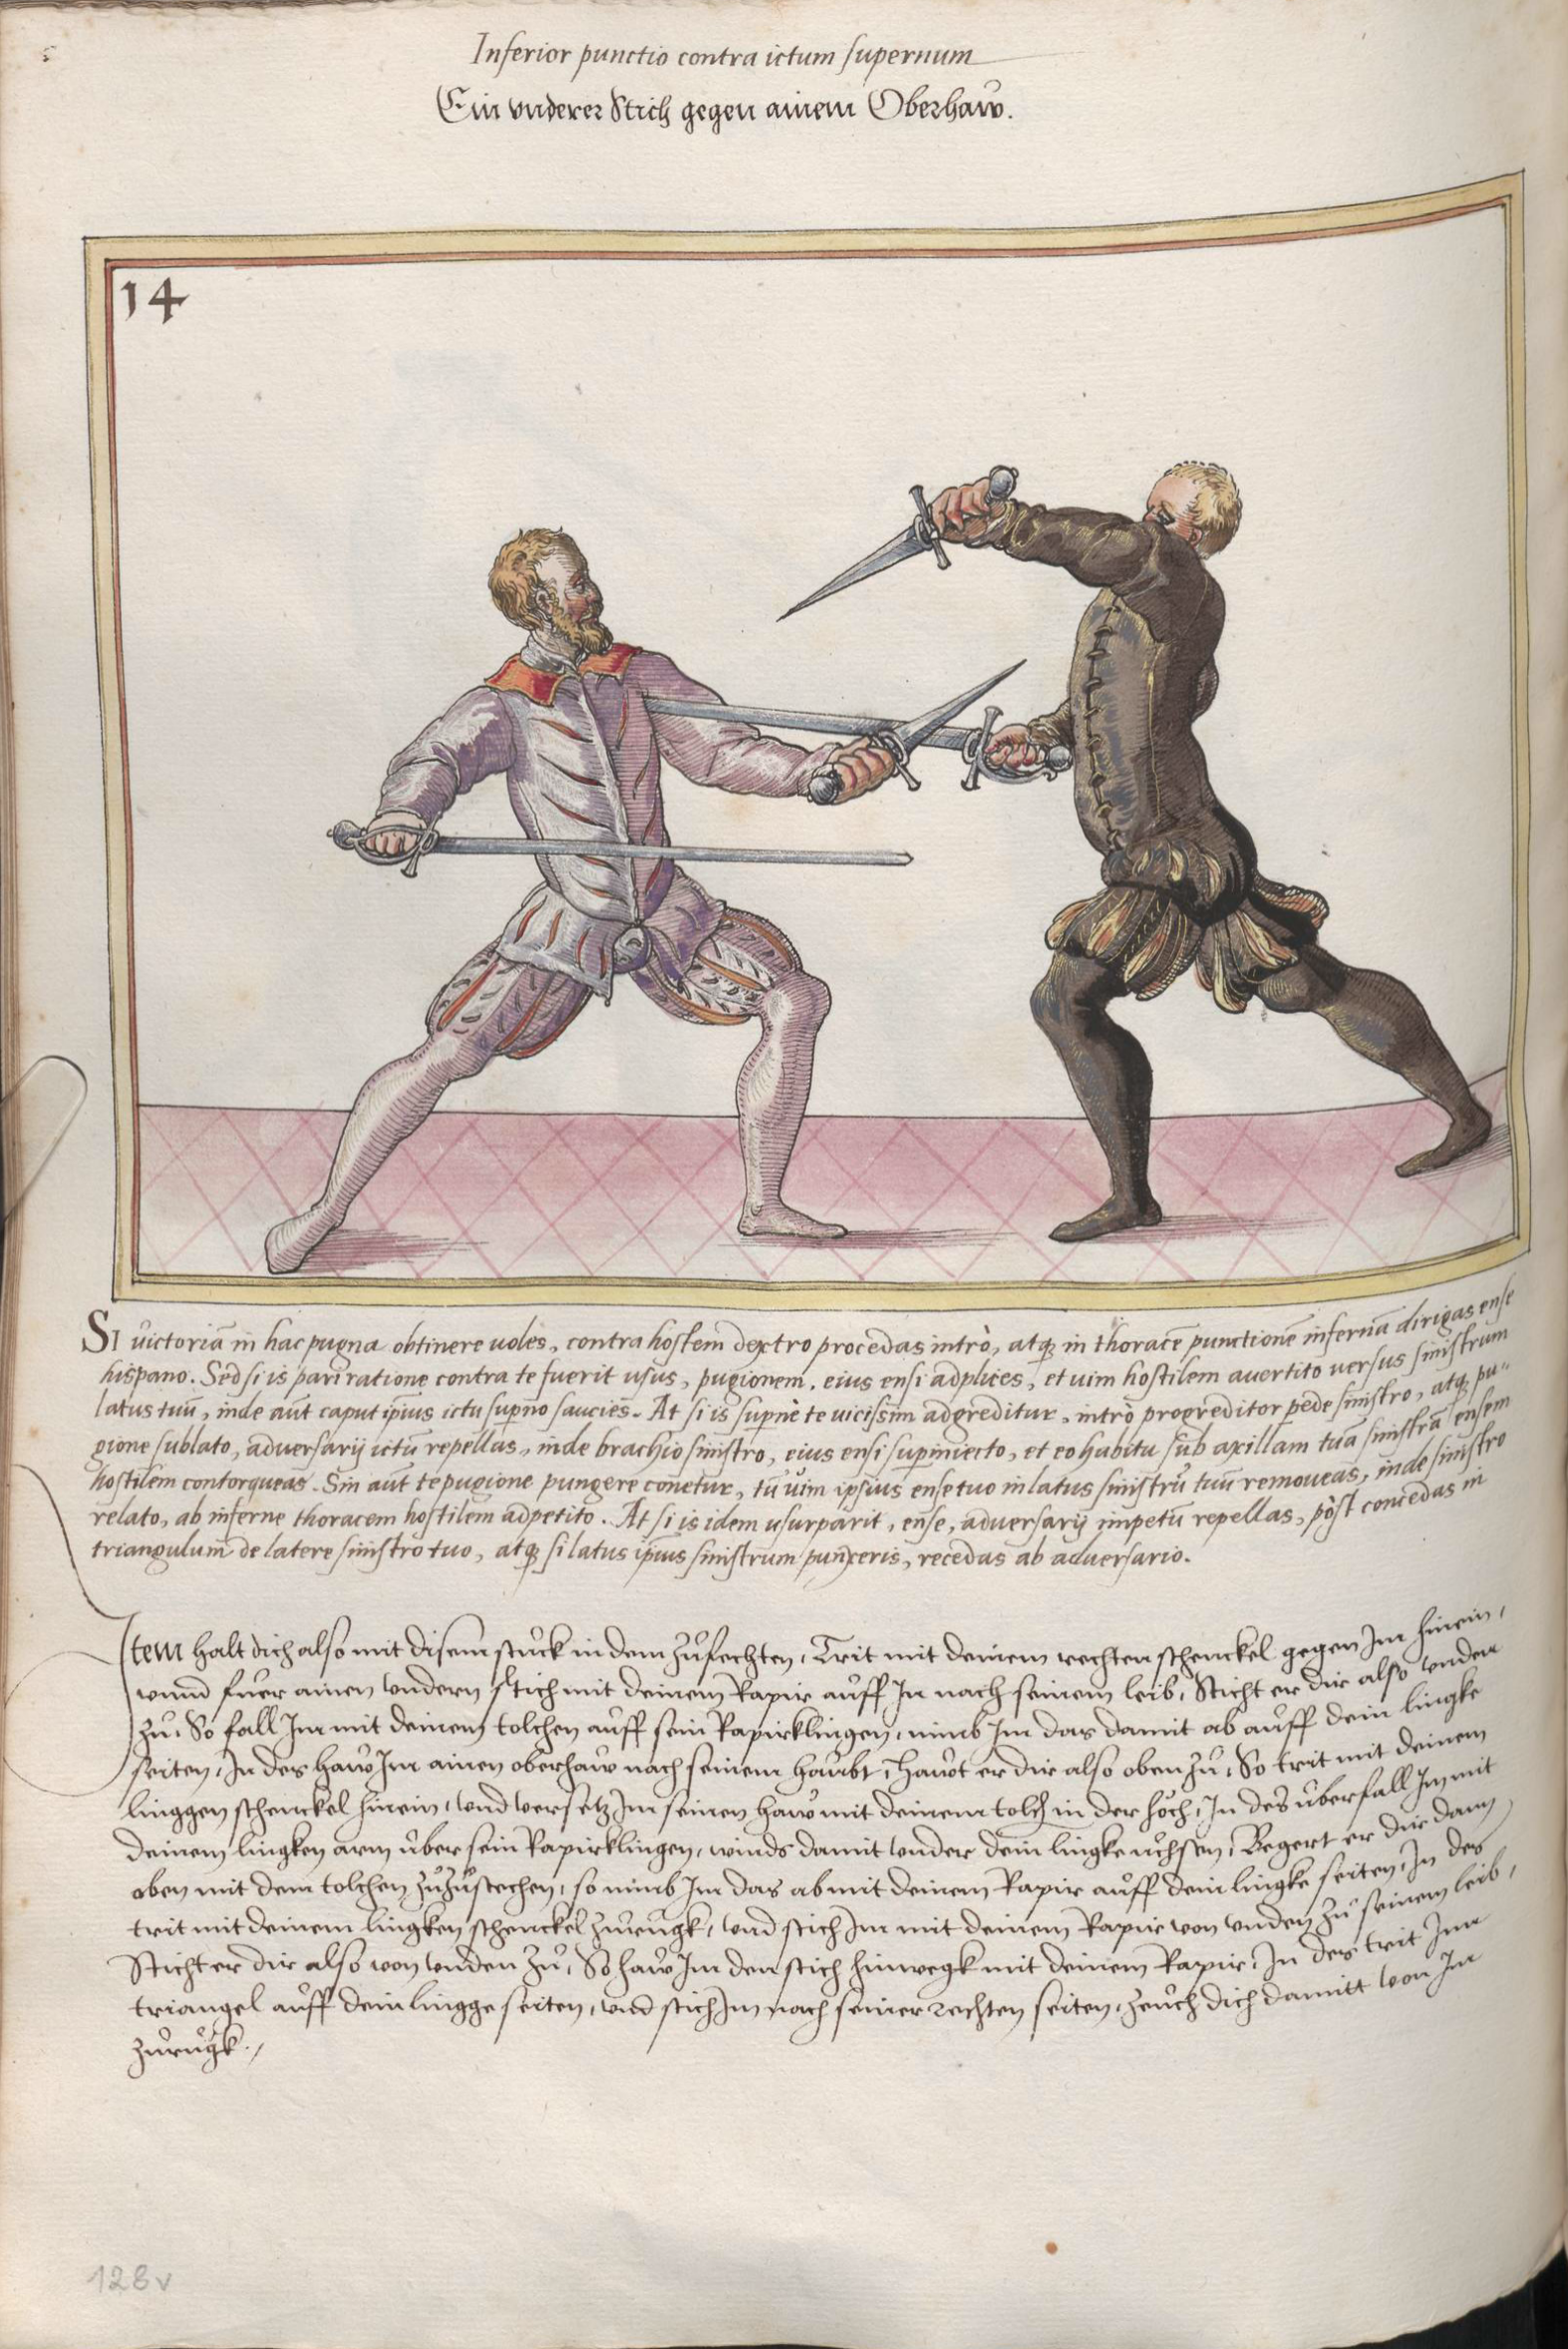 Inferior punctio contra ictum supernum
Ein vnderer Stich gegen ainem Oberhaw.
14
SI victoriā in hac pugna obtinere uoles, contra hostem dextro procedas intrò, atq; in thoracē punctionē infernā dirigas ense
hispano. Sed si is pari ratione contra te fuerit usus, pugionem, eius ensi adplices, et uim hostilem auertito uersus sinistrum
latus tuū, inde aūt caput ipīus ictu supīno saucies. At si is supīnè te uicissim adgreditur, intrò progreditor pede sinistro, atq; pu=
gione sublato, adversarij ictū repellas, inde brachio sinistro, eius ensi supīniecto, et eo habitu sub axillam tuā sinistrā ensem
hostilem contorqueas. Sin aūt te pugione pungere conetur, tū uim ipsius ense tuo in latus sinistrū tuū remoueas, inde sinistro
relato, ab inferne thoracem hostilem adpetito. At si is idem usurparit, ense, adversarij impetū repellas, pòst concedas in
triangulum de latere sinistro tuo, atq; si latus ipīus sinistrum punxeris, recedas ab aduersario.
Item halt dich also mit disem stuck in dem zůfechten, Trit mit deinem rechten schenckel gegen Im hinein,
vnnd fuer ainen vndern stich mit deinem Rapir auff In nach seinem leib, Sticht er dir also vnden
zů, So fall Im mit deinem tolchen auff sein Rapirklingen, nimb Im das damit ab auff dein lingke
seiten, In des haw Im ainen oberhaw nach seinem haubt, Hawt er dir also oben zů, So trit mit deinem
linggen schenckel hinein, vnd versetz Im seinen haw mit deinem tolch in der höch, In des uberfall Im mit
deinem lingken arm uber sein Rapirklingen, winds damit vnder dein lingke uchsen, Begert er dir dann
oben mit dem tolchen zůzůstechen, so nimb Im das ab mit deinem Rapir auff dein lingke seiten, In des
trit mit deinem lingken schenckel zurugk, vnd stich Im mit deinem Rapir von vnden zů seinem leib,
Sticht er dir also von vnden zů, So haw Im den stich hinwegk mit deinem Rapir, In des trit Im
triangel auff dein lingge seiten, vnd stich Im nach seiner rechten seiten, zeuch dich damitt von Im
zurugk.
128v